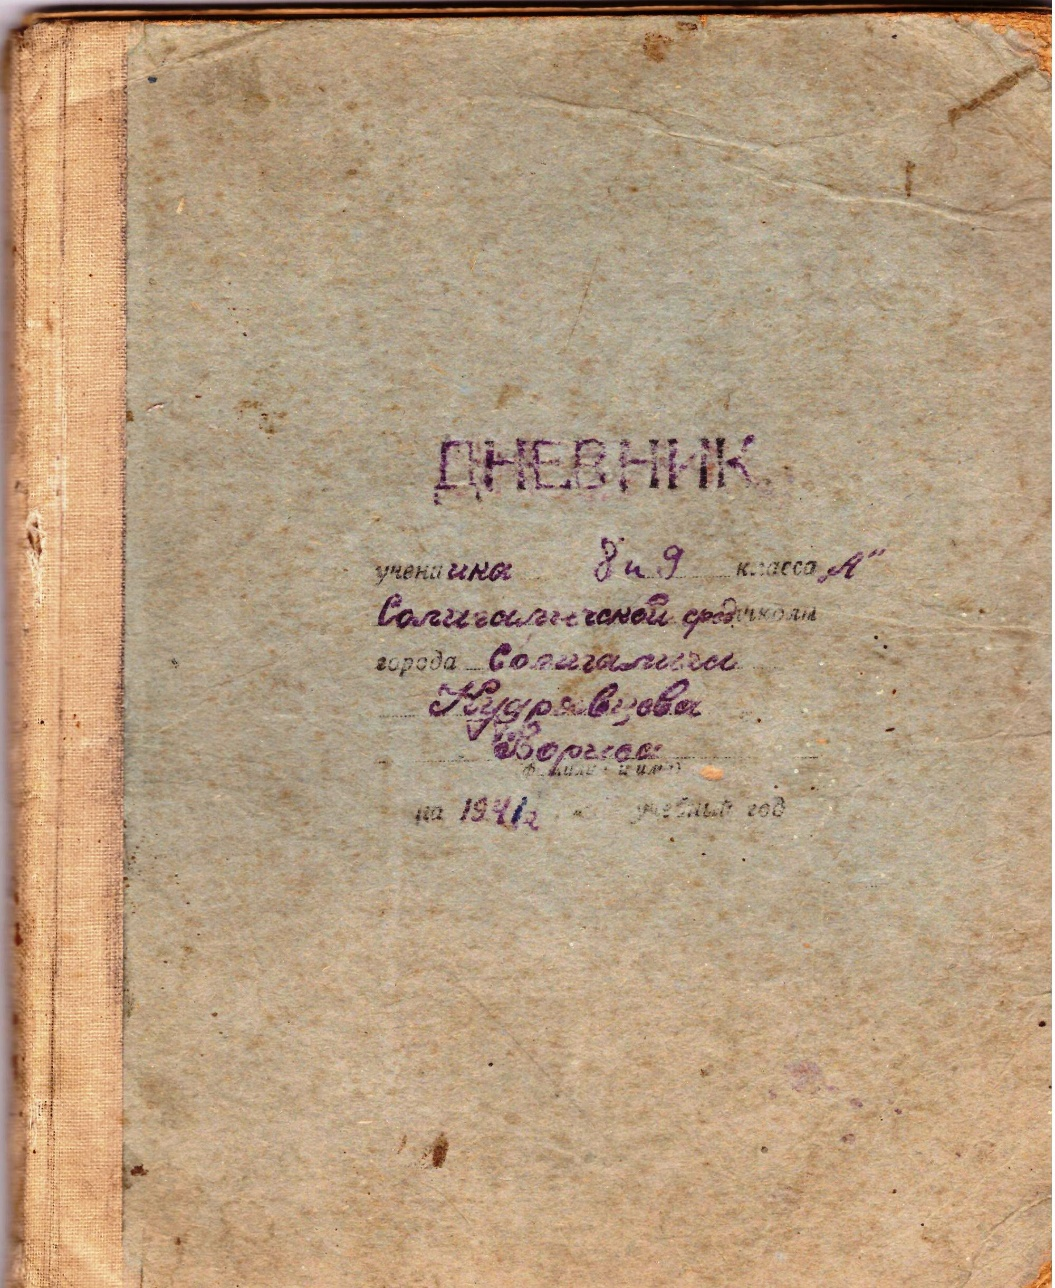 ДНЕВНИК
ученика 8 и 9 класса „А"
Солигаличской сред школы
города Солигалича
Кудрявцова
Бориса
фамилия и имя
на 1941/2 учебный год